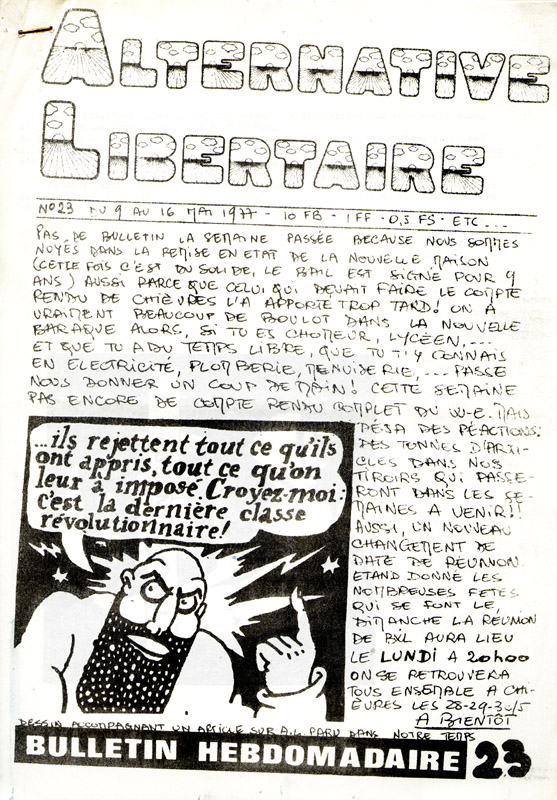 ALTERNATIVE
LIBERTAIRE
N°23 DU 9 AU 16 MAI 1977 - 10 FB - 1FF - 0,5 FS - ETC ...
PAS DE BULLETIN LA SEMAINE PASSÉE BECAUSE NOUS SOMMES
NOYÉS DANS LA REMISE EN ETAT DE LA NOUVELLE MAISON
(CETTE FOIS C'EST DU SOLIDE, LE BAIL EST SIGNÉ POUR 9
ANS) AUSSI PARCE QUE CELUI QUI DEVAIT FAIRE LE COMPTE
RENDU DE CHIÈVRES L'A APPORTÉ TROP TARD! ON A
VRAIMENT BEAUCOUP DE BOULOT DANS LA NOUVELLE
BARAQUE ALORS, SI TU ES CHOMEUR, LYCÉEN,...
ET QUE TU A DU TEMPS LIBRE, QUE TU T'Y CONNAIS
EN ELECTRICITÉ, PLOMBERIE, MENUISERIE,... PASSE
NOUS DONNER UN COUP DE MAIN! CETTE SEMAINE
PAS ENCORE DE COMPTE RENDU COMPLET DU W-E. MAIS
DÉJA DES RÉACTIONS.
DES TONNES D'ARTI-
CLES DANS NOS
TIROIRS QUI PASSE-
RONT DANS LES SE-
MAINES A VENIR!!
AUSSI, UN NOUVEAU
CHANGEMENT DE
DATE DE RÉUNION.
ETAND DONNÉ LES
NOMBREUSES FETES
QUI SE FONT LE,
DIMANCHE LA RÉUNION
DE BXL AURA LIEU
LE LUNDI A 20h00
ON SE RETROUVERA
TOUS ENSEMBLE A CHI-
ÈVRES LES 28-29-30/5
A BIENTOT
...ils rejettent tout ce qu'ils
ont appris, tout ce qu'on
leur à imposé Croyez-moi:
c'est la dernière classe
révolutionnaire!
DESSIN ACCOMPAGNANT UN ARTICLE SUR A.L. PARU DANS NOTRE TEMPS
BULLETIN HEBDOMADAIRE 23